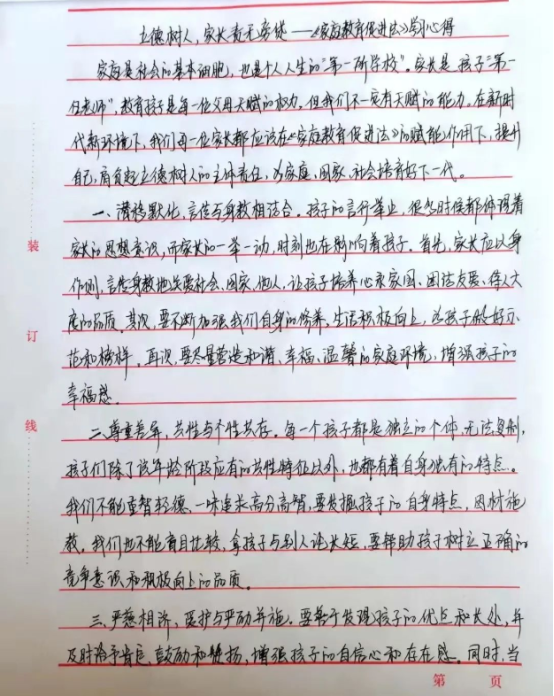 立德树人，家长责无旁贷——《家庭教育促进法》学习心得
家庭是社会的基本细胞，也是个人人生的"第一所学校"。家长是孩子"第一
任老师"，教育孩子是每一位父母天赋的权力，但我们不一定有天赋的能力。在新时
代新环境下，我们每一位家长都应该在《家庭教育促进法》的赋能作用下，提升
自己，肩负起立德树人的主体责任，为家庭、国家、社会培育好下一代。
一、潜移默化，言传与身教相结合。孩子的言行举止，很多时候都体现着
家长的思想意识，而家长的一举一动，时刻也在影响着孩子。首先，家长应以身
作则，言传身教地关爱社会、国家、他人，让孩子培养心系家国、团结友爱、待人大
度的品质。其次，要不断加强我们自身的修养，生活积极向上，为孩子做好示
范和榜样。再次，要尽量营造和谐、幸福、温馨的家庭环境，增强孩子的
幸福感。
二、尊重差异，共性与个性共存。每一个孩子都是独立的个体，无法复制，
孩子们除了该年龄阶段应有的共性特征以外，也都有着自身独有的特点。
我们不能重智轻德，一味追求高分高智，要发掘孩子的自身特点，因材施
教。我们也不能盲目比较，拿孩子与别人论长短，要帮助孩子树立正确的
竞争意识和积极向上的品质。
三、严慈相济，爱护与严励并施。要善于发现孩子的优点和长处，并
及时给予肯定、鼓励和赞扬，增强孩子的自信心和存在感。同时，当
装
订
线
第 页